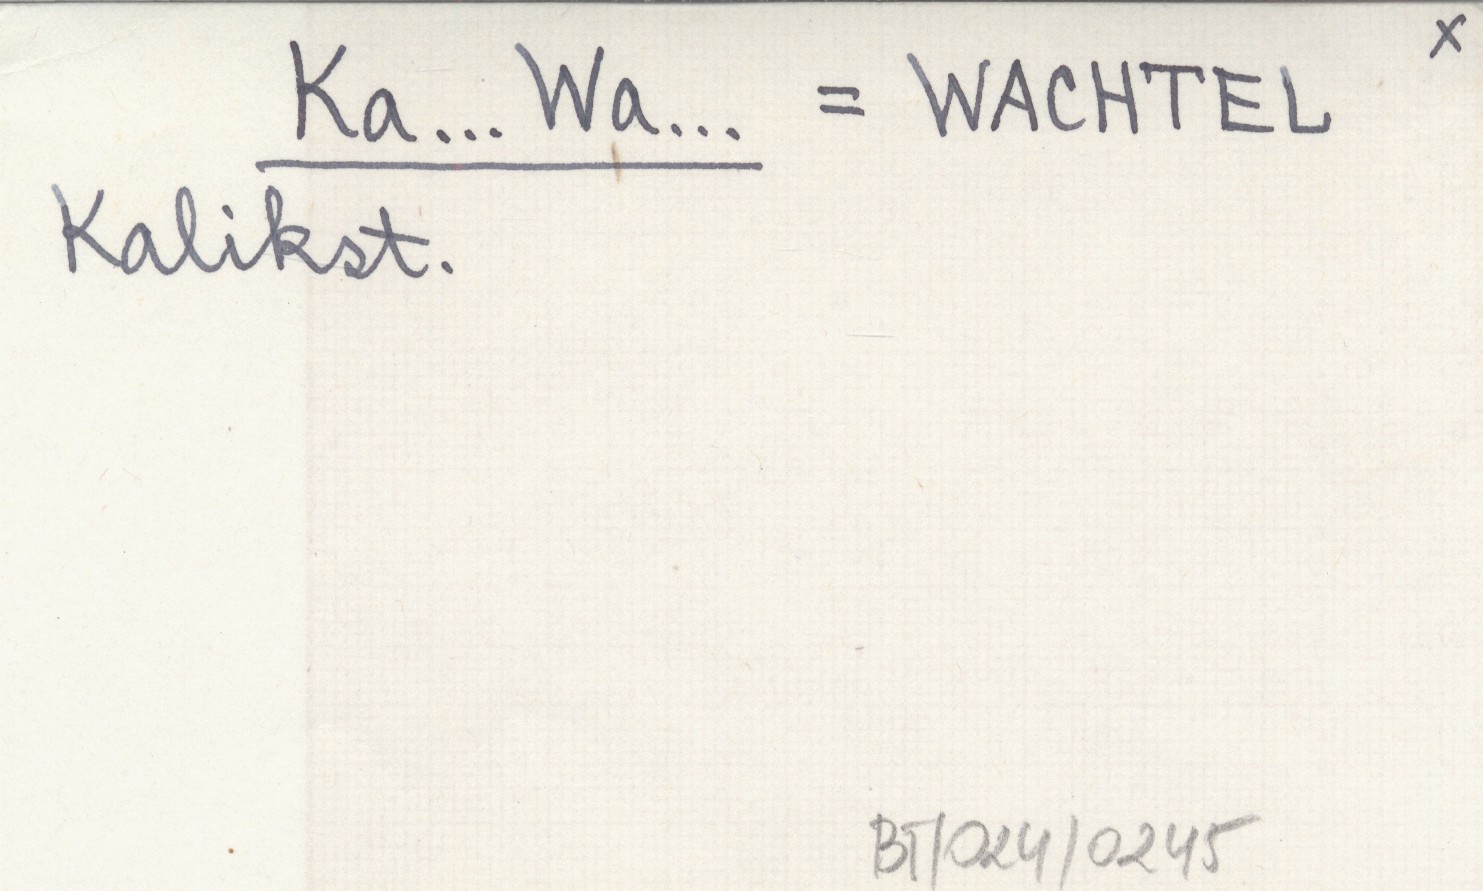 x
Ka... Wa... = WACHTEL
Kalikst.
BT/024/0245